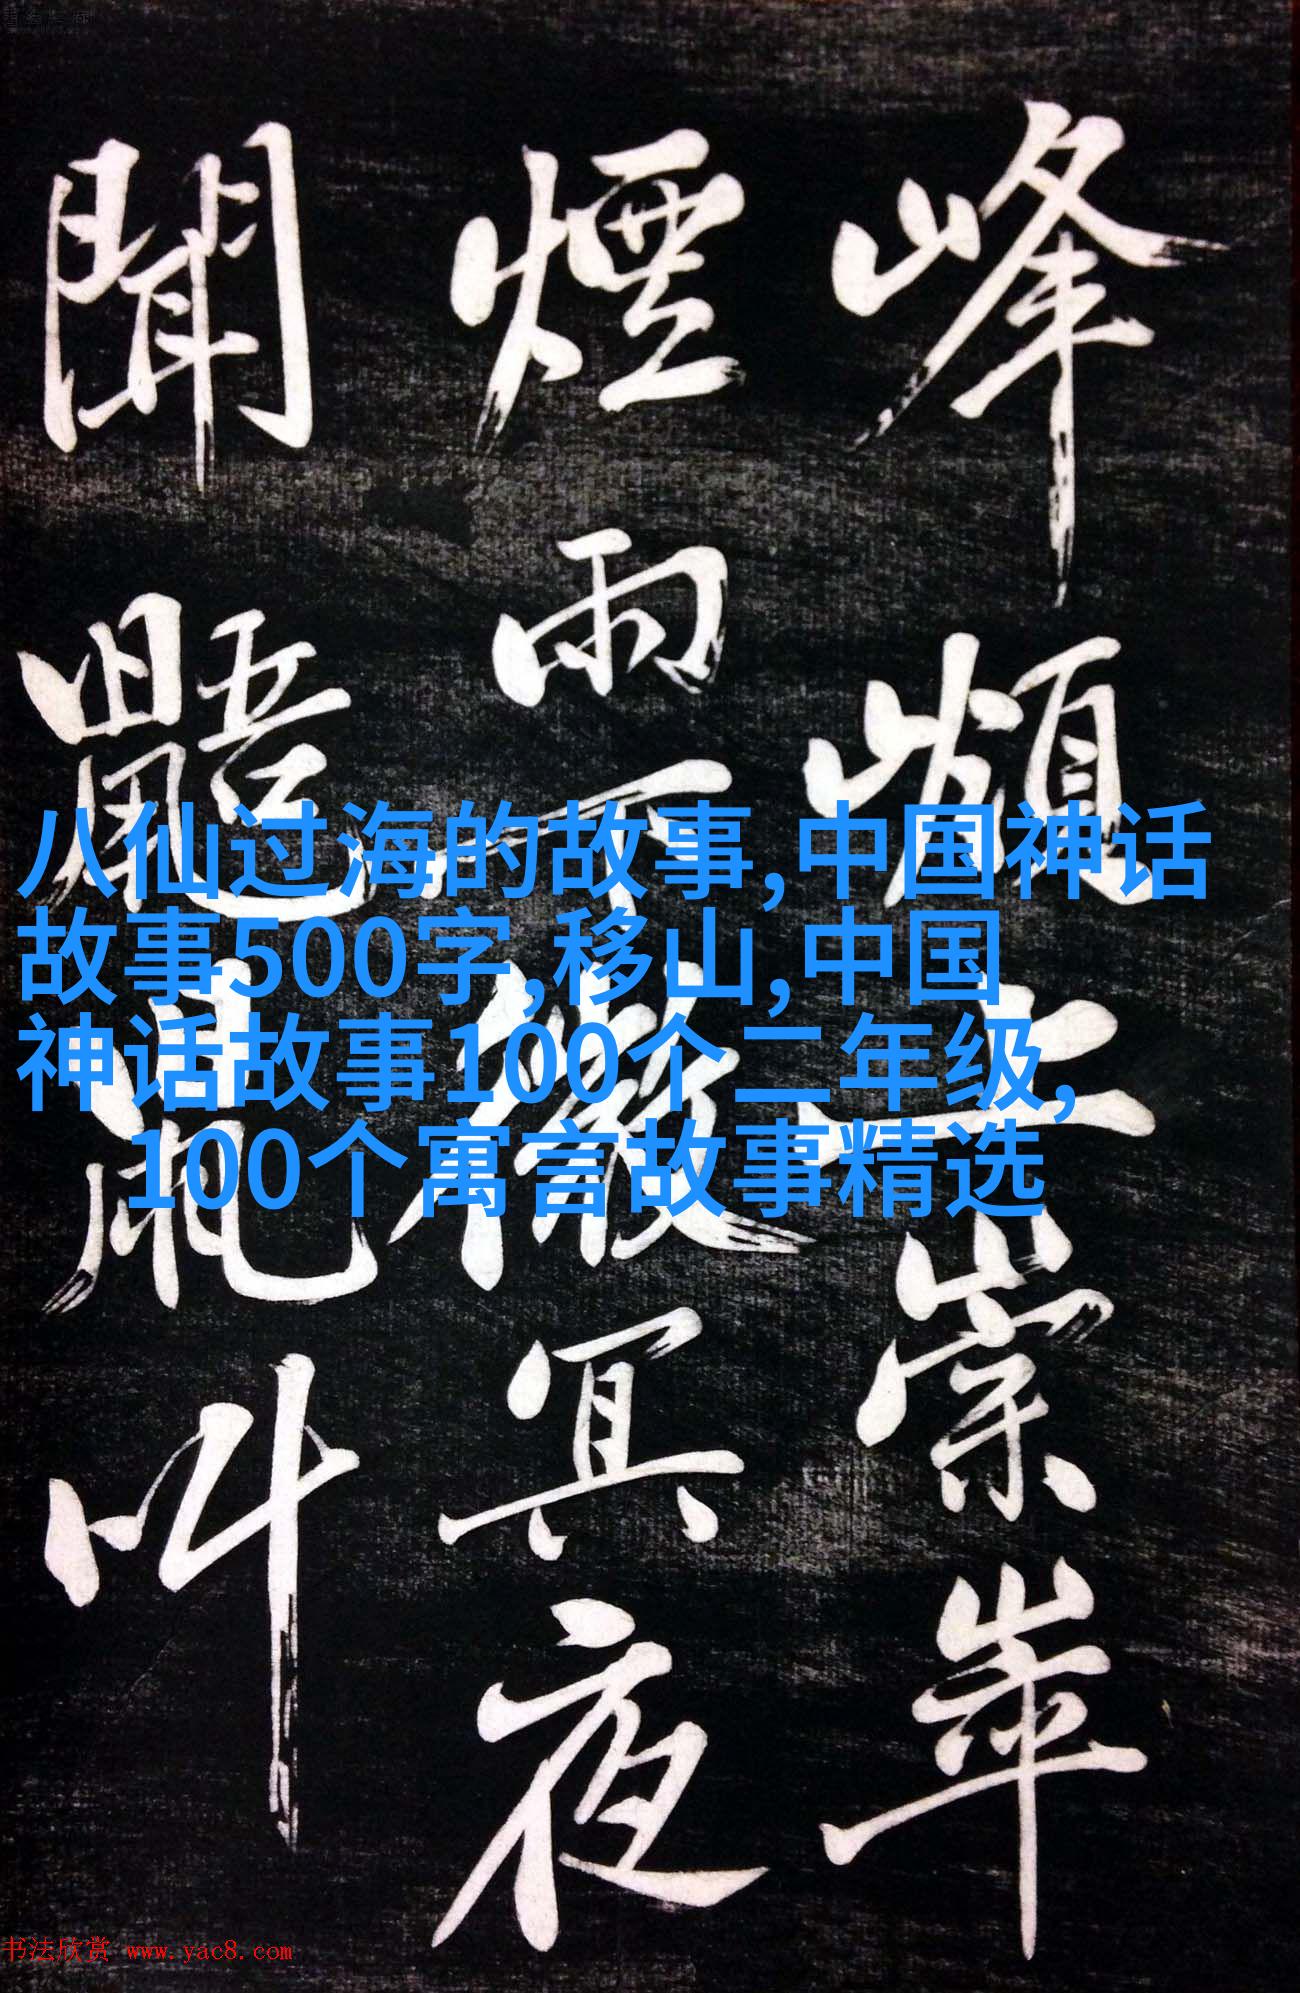 峰上崇崒
煙雨下微冥夜
聞鼯鼠叫
八仙过海的故事,中国神话
故事500字,移山,中国
神话故事100个二年级,
100个寓言故事精选
书法欣赏 www.yac8.com